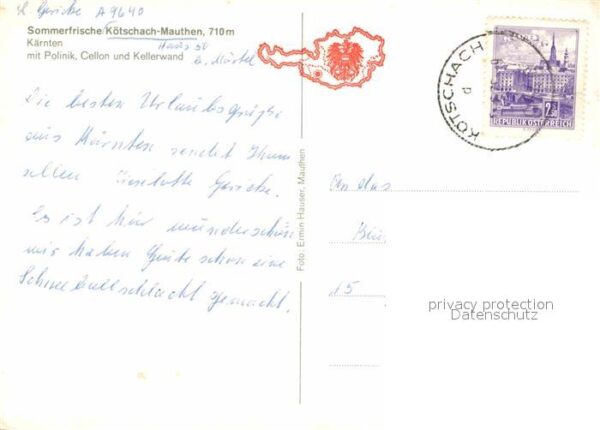 L. Gericke A 9640
Sommerfrische Kötschach-Mauthen, 710 m
Kärnten
Haus 50
mit Polinik, Cellon und Kellerwand
Die besten Urlaubsgrüße
aus Kärnten sendet Ihnen
allen Lieselotte Gericke.
Es ist hier wunderschön
wir haben heute schon eine
Schneeballschlacht gemacht.
Foto: Ermin Hauser, Mauthen
KÖTSCHACH
2.50
REPUBLIK ÖSTERREICH
An das
15
privacy protection
Datenschutz